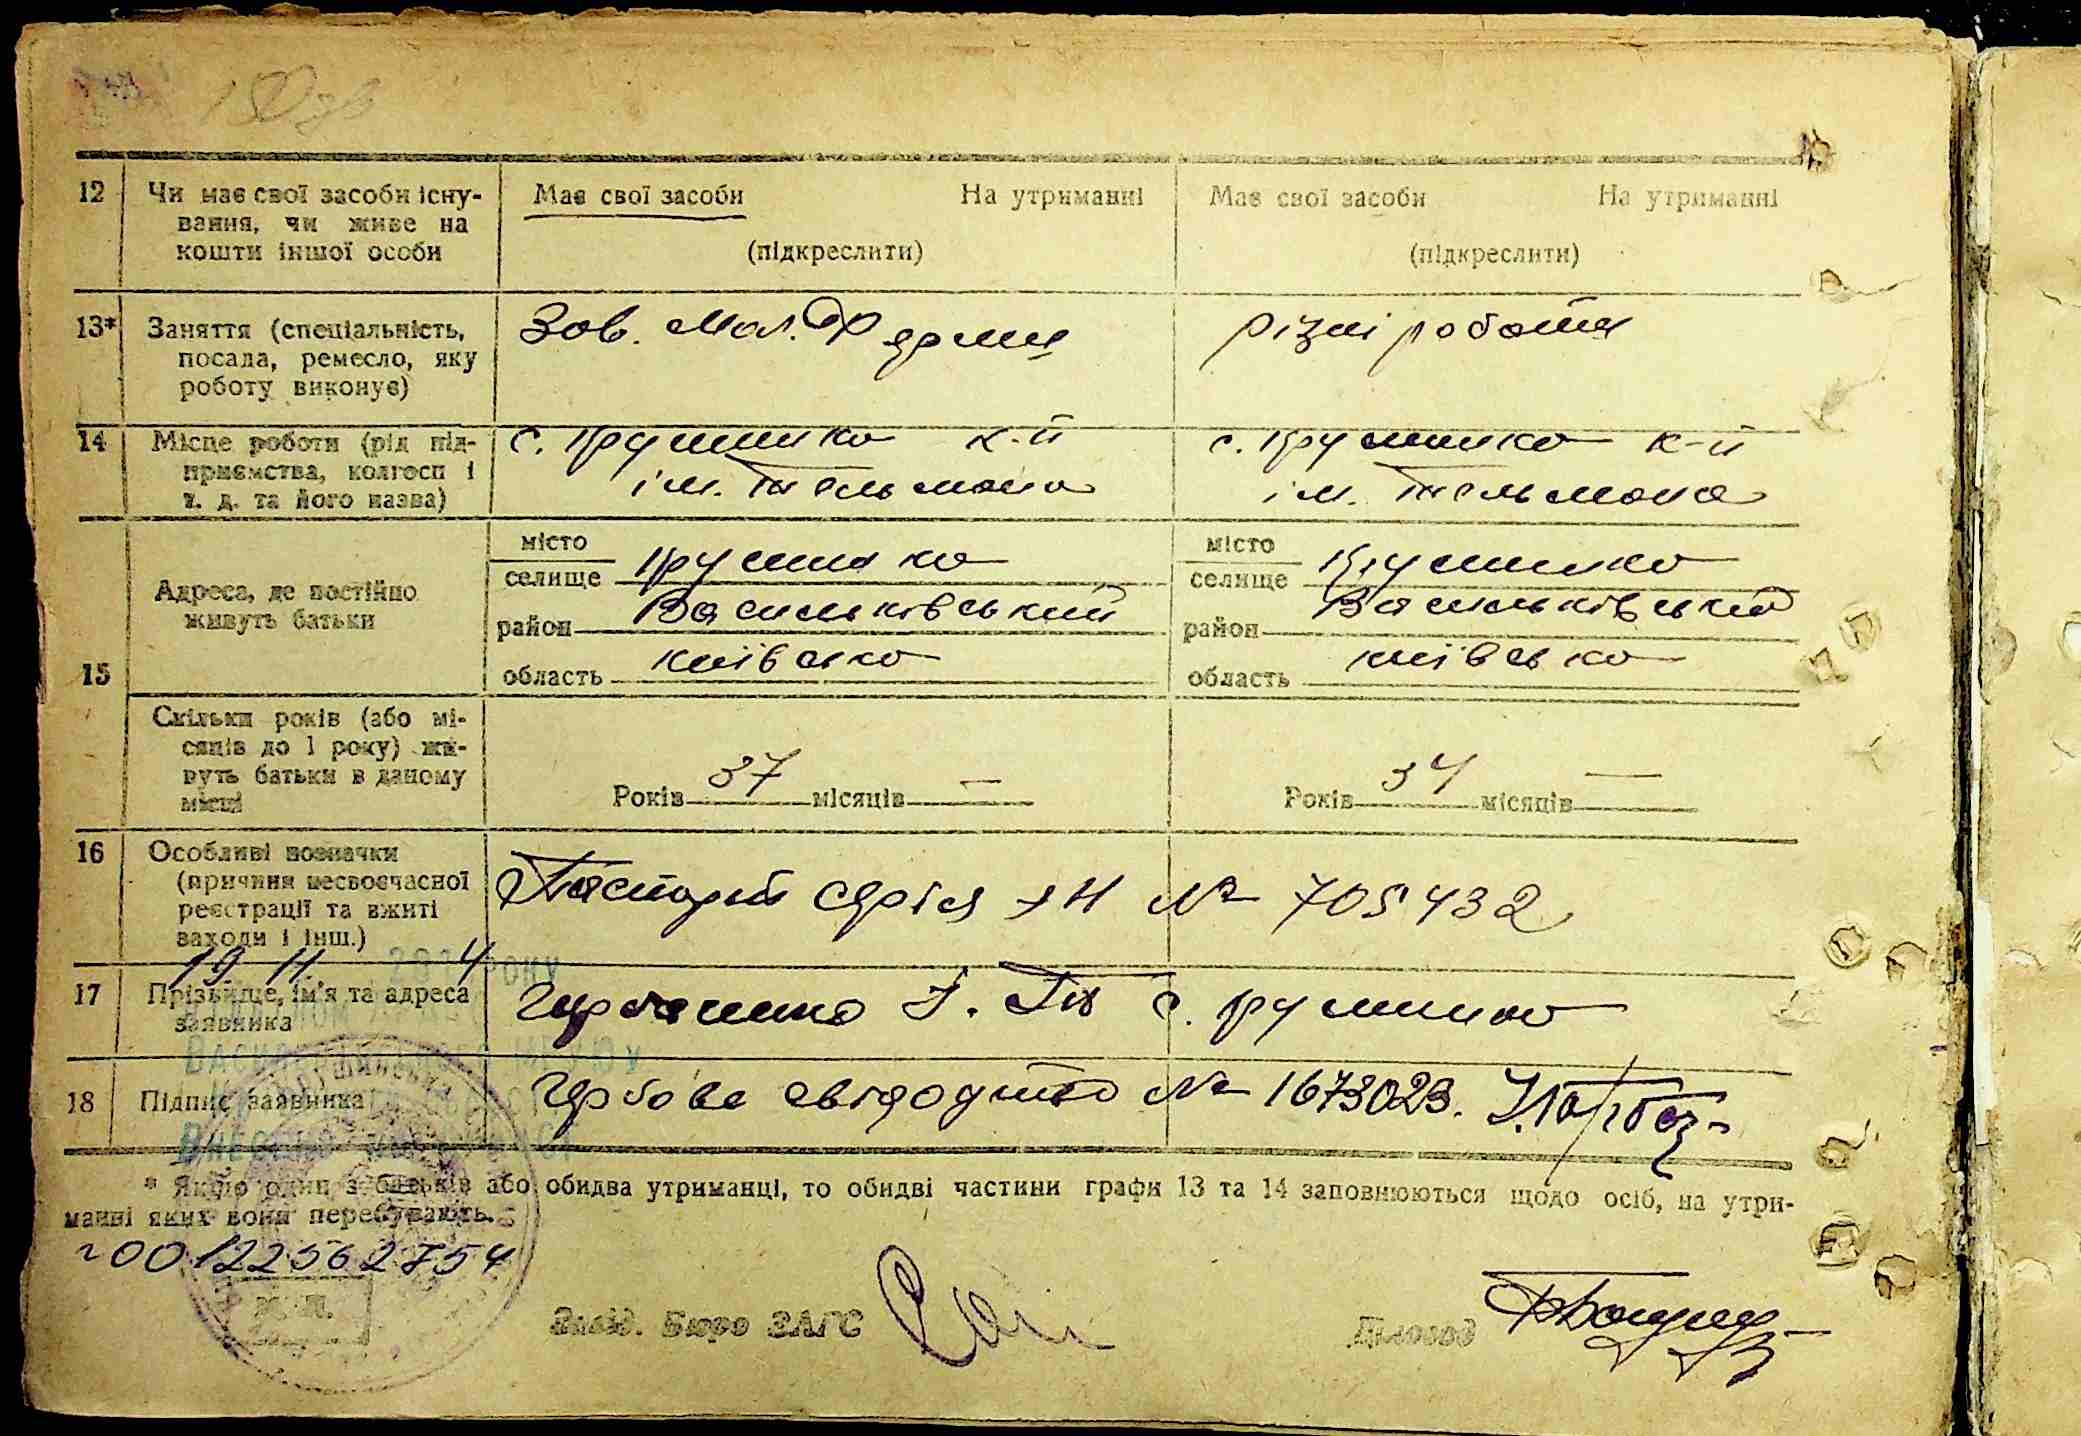 12 Чи має свої засоби існу- Має свої засоби На утриманні Має свої засоби На утриманні
вання, чи живе на
кошти іншої особи (підкреслити) (підкреслити)
13* Заняття (спеціальність, Зав. мол. Ферми різні роботи
посада, ремесло, яку
роботу виконує)
14 Місце роботи (рід під- с. Крушинка к-п с. Крушинка к-п
приємства, колгосп і ім. Тельмана ім. Тельмана
т. д. та його назва)
місто місто
селище Крушинка селище Крушинка
Адреса, де постійно
живуть батьки
район Васильківський район Васильківський
15 область київська область київська
Скільки років (або мі-
сяців до 1 року) жи-
вуть батьки в даному
місці Років 37 місяців — Років 34 місяців —
16 Особливі позначки
(причини несвоєчасної Паспорт серія ЯН № 705432
реєстрації та вжиті
заходи і інш.)
19 11. 4 року
17 Прізвище, ім'я та адреса І. П. с. Крушинка
заявника
18 Підпис заявника Гербове свідоцтво № 1673023.
* Якщо один з батьків або обидва утриманці, то обидві частини графи 13 та 14 заповнюються щодо осіб, на утри-
манні яких вони перебувають.
00122562754
М. П.
Завід. Бюро ЗАГС Діловод